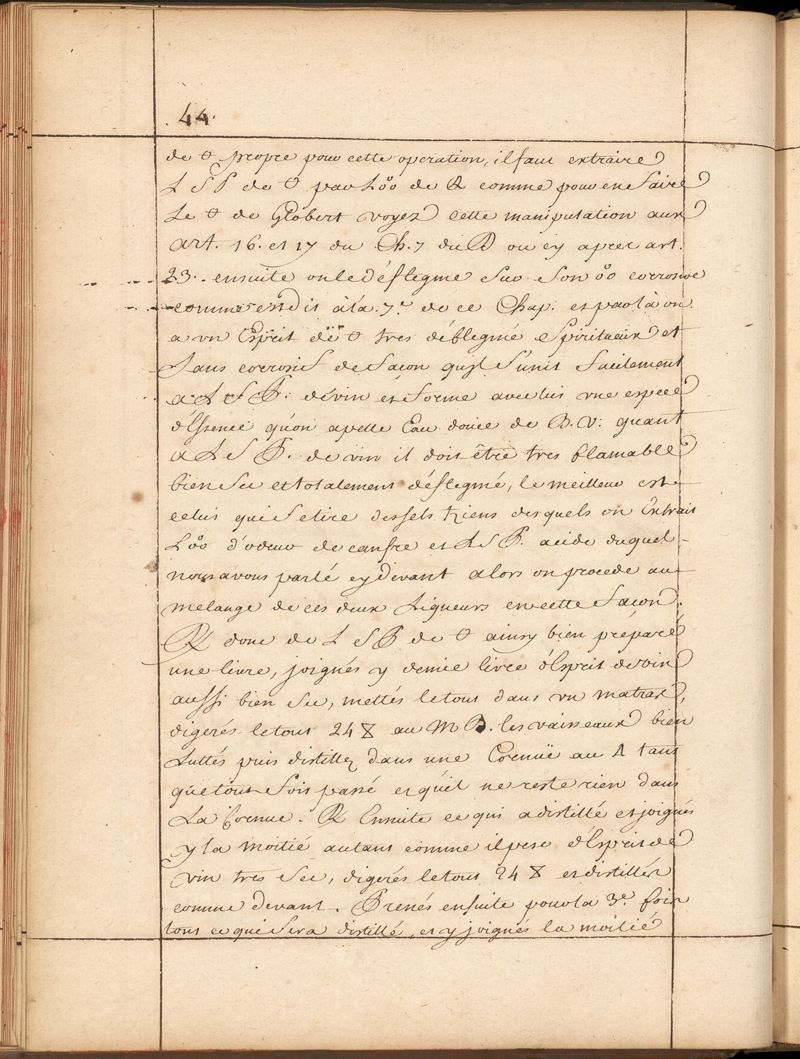 44.
de 🜔 propre pour cette operation, il faut extraire
L S P de 🜔 par L'oo de 🜂 comme pour en faire
Le 🜔 de Globert voyez cette manipulation aux
art. 16. et 17 du Ch. 7 du ou cy aprez art.
23. ensuite on le déflegme sur son oo corrosive
comme est dit à la 7.e de ce Chap. et par là on
a un Esprit de 🜔 tres déflegmé Spiritueux et
Sans corrosif de facon qu'il s'unit facilement
a L S P. de vin et forme avec lui vne espece
d'Essence qu'on apelle Eau douce de B. V: quant
a L S P. de vin il doit être tres flamable
bien Sec et totalement déflegmé, le meilleur est
celui qui se tire des sels desquels on Extrait
L'oo d'odeur de canfre et L S P. acide duquel
nous avons parlé cy devant alors on procede au
melange de ces deux Liqueurs en cette facon.
℞ donc de L S P de 🜔 ainsy bien préparé
une livre, joignés y demie livre d'Esprit de vin
aussi bien Sec, mettés le tout dans un matras,
digerés le tout 24 au M B. les vaisseaux bien
Luttés puis distillez dans une Cornuë au tant
que tout Soit passé et qu'il ne reste rien dans
La Cornue. ℞ Ensuite ce qui a distillé et joignés
y la moitié autant comme il pese d'Esprit de
vin tres Sec, digerés le tout 24 et distillés
comme devant. Prenés ensuite pour la 3.e fois
tout ce qui Sera distillé, et y joignés la moitié